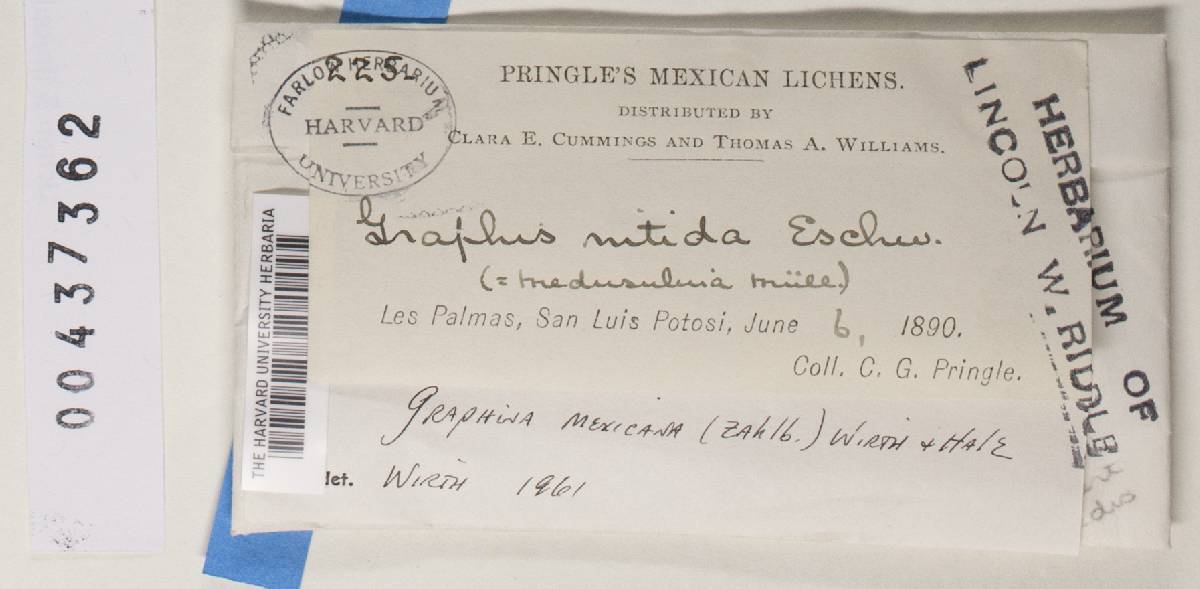 00437362
THE HARVARD UNIVERSITY HERBARIA
225
FARLOW HERBARIUM
HARVARD
UNIVERSITY
PRINGLE'S MEXICAN LICHENS.
DISTRIBUTED BY
CLARA E. CUMMINGS AND THOMAS A. WILLIAMS.
HERBARIUM OF
LINCOLN W. RIDDLE
Graphis nitida Eschw.
(= medusulina Müll.)
Les Palmas, San Luis Potosi, June 6, 1890.
Coll. C. G. Pringle.
GRAPHINA MEXICANA (ZAHlb.) WIRTH + HALE
det. WIRTH 1961